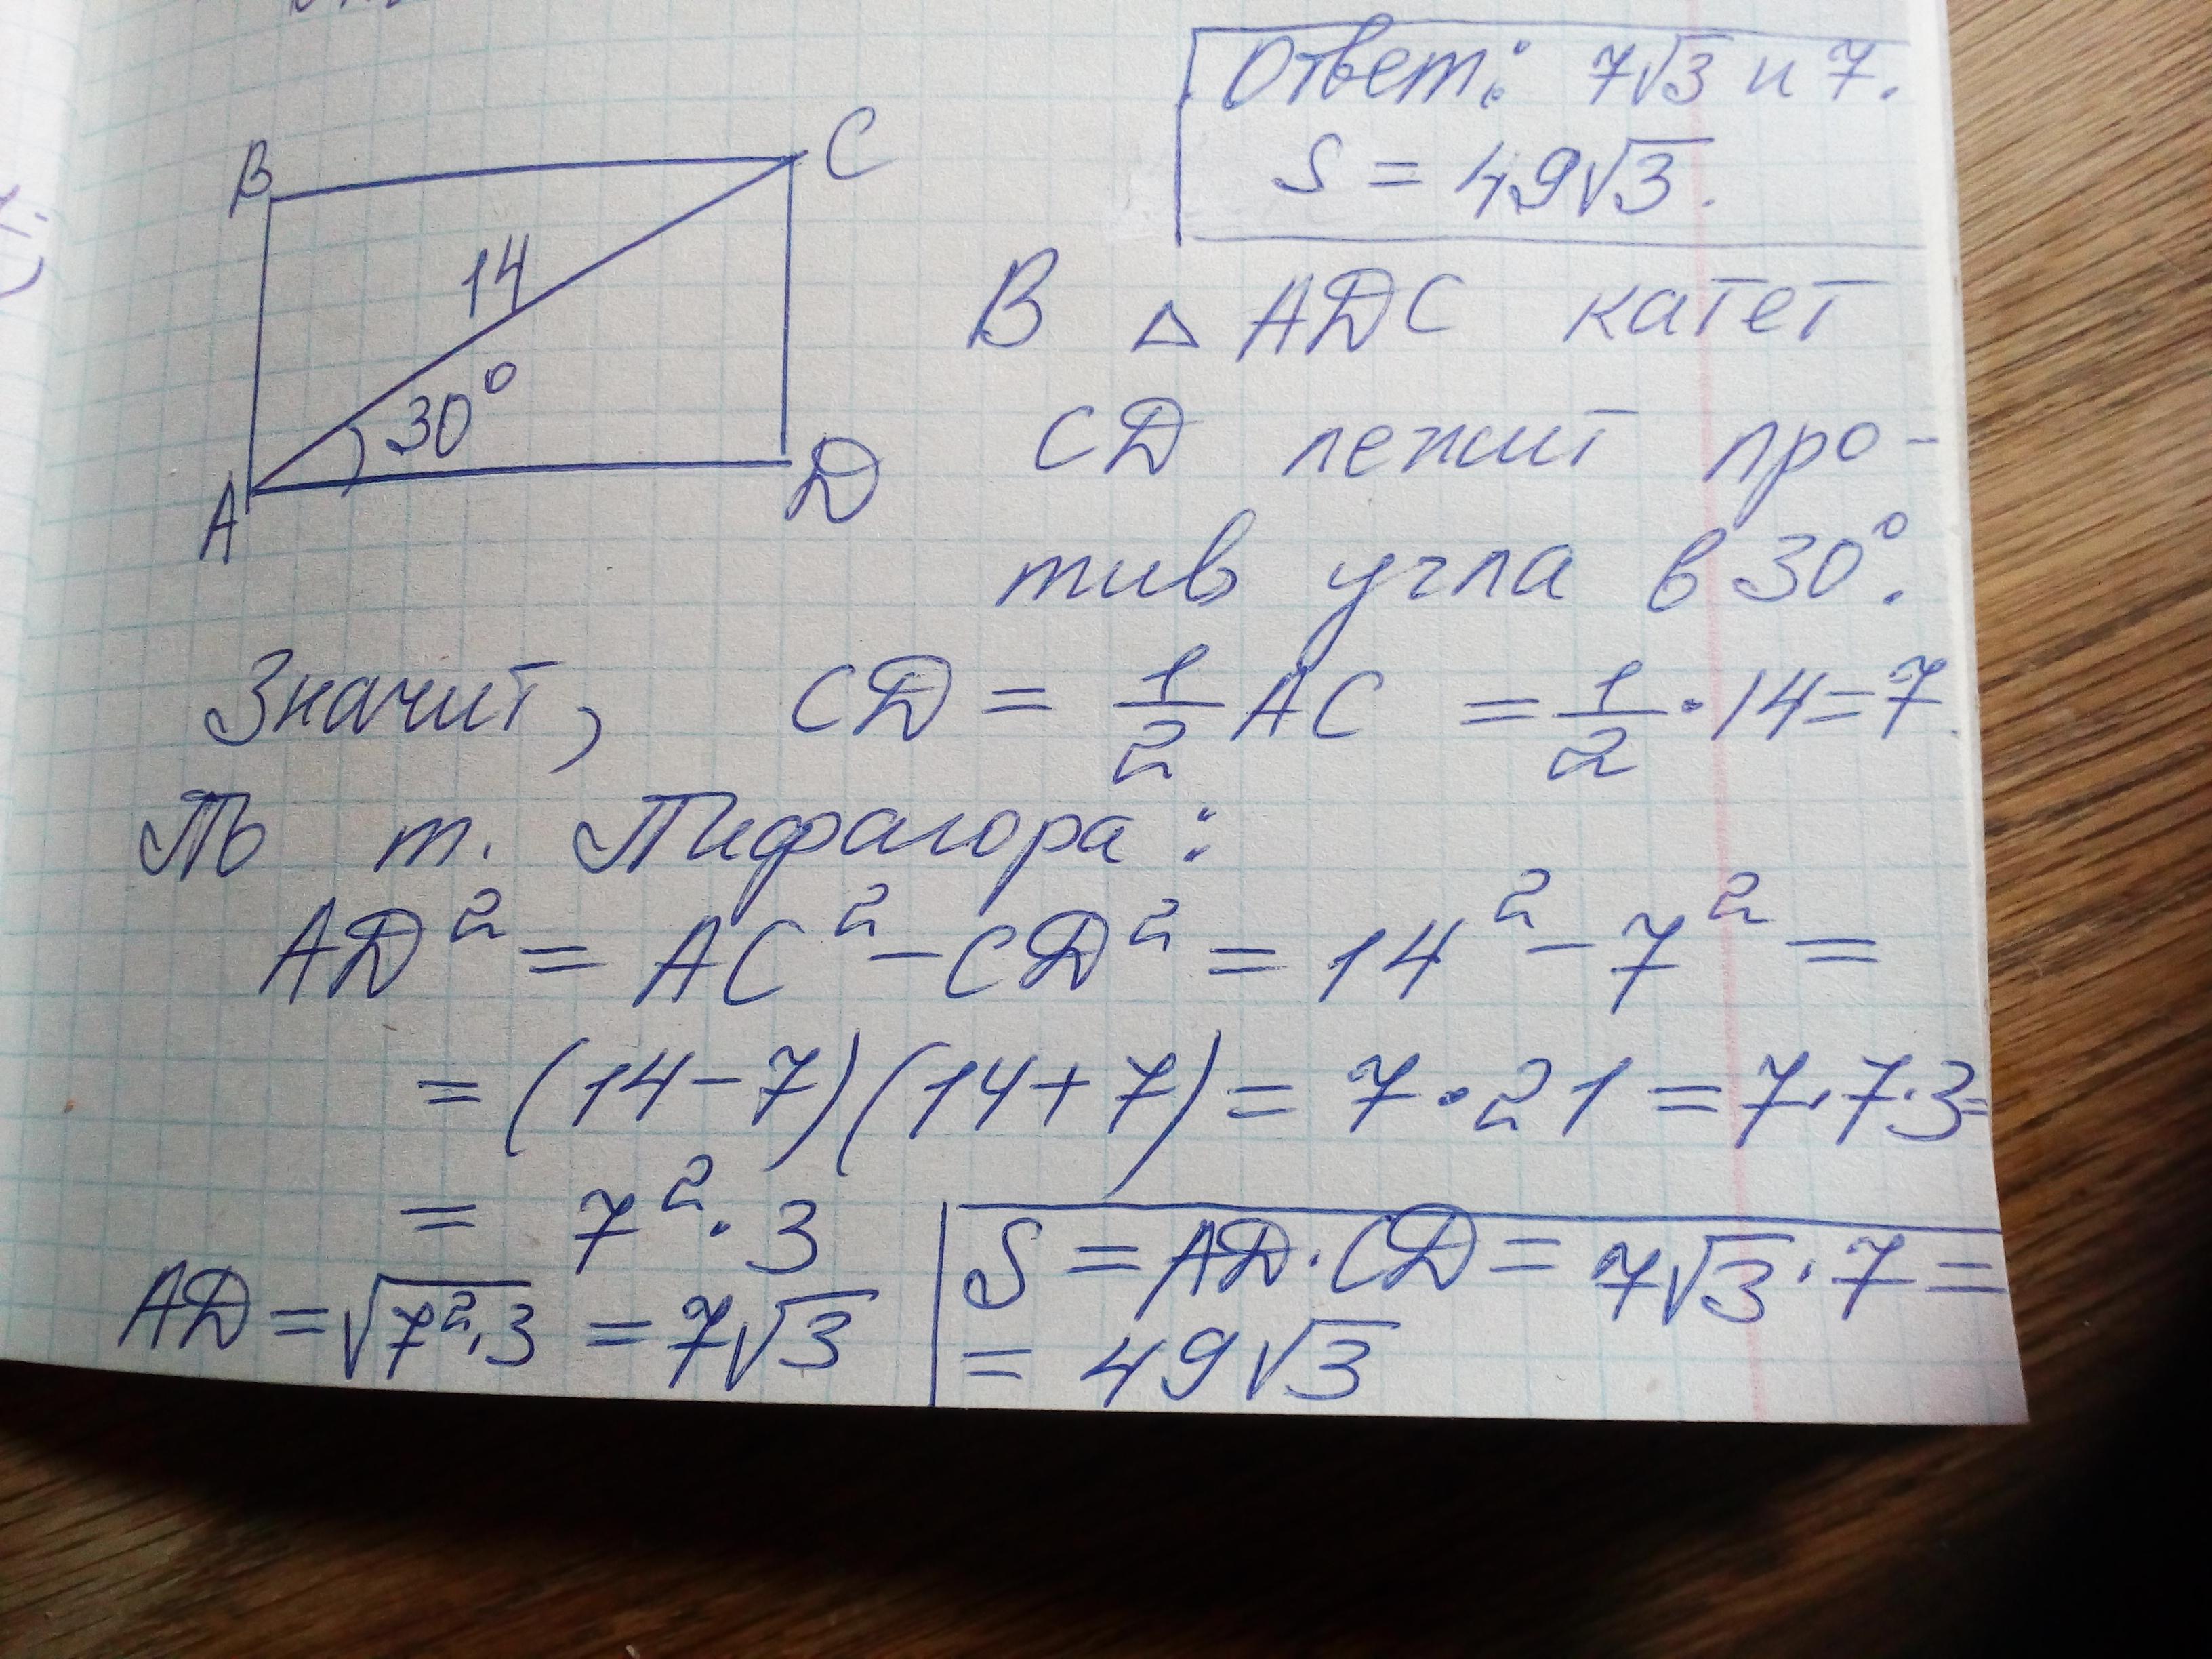 Ответ: 7√3 и 7.
S = 49√3.
B
C
14
30°
A
D
В △ ADC катет
CD лежит про-
тив угла в 30°.
Значит, CD = 1/2 AC = 1/2 · 14 = 7.
По т. Пифагора:
AD² = AC² - CD² = 14² - 7² =
= (14 - 7)(14 + 7) = 7 · 21 = 7 · 7 · 3 =
= 7² · 3
AD = √(7² · 3) = 7√3
S = AD · CD = 7√3 · 7 =
= 49√3